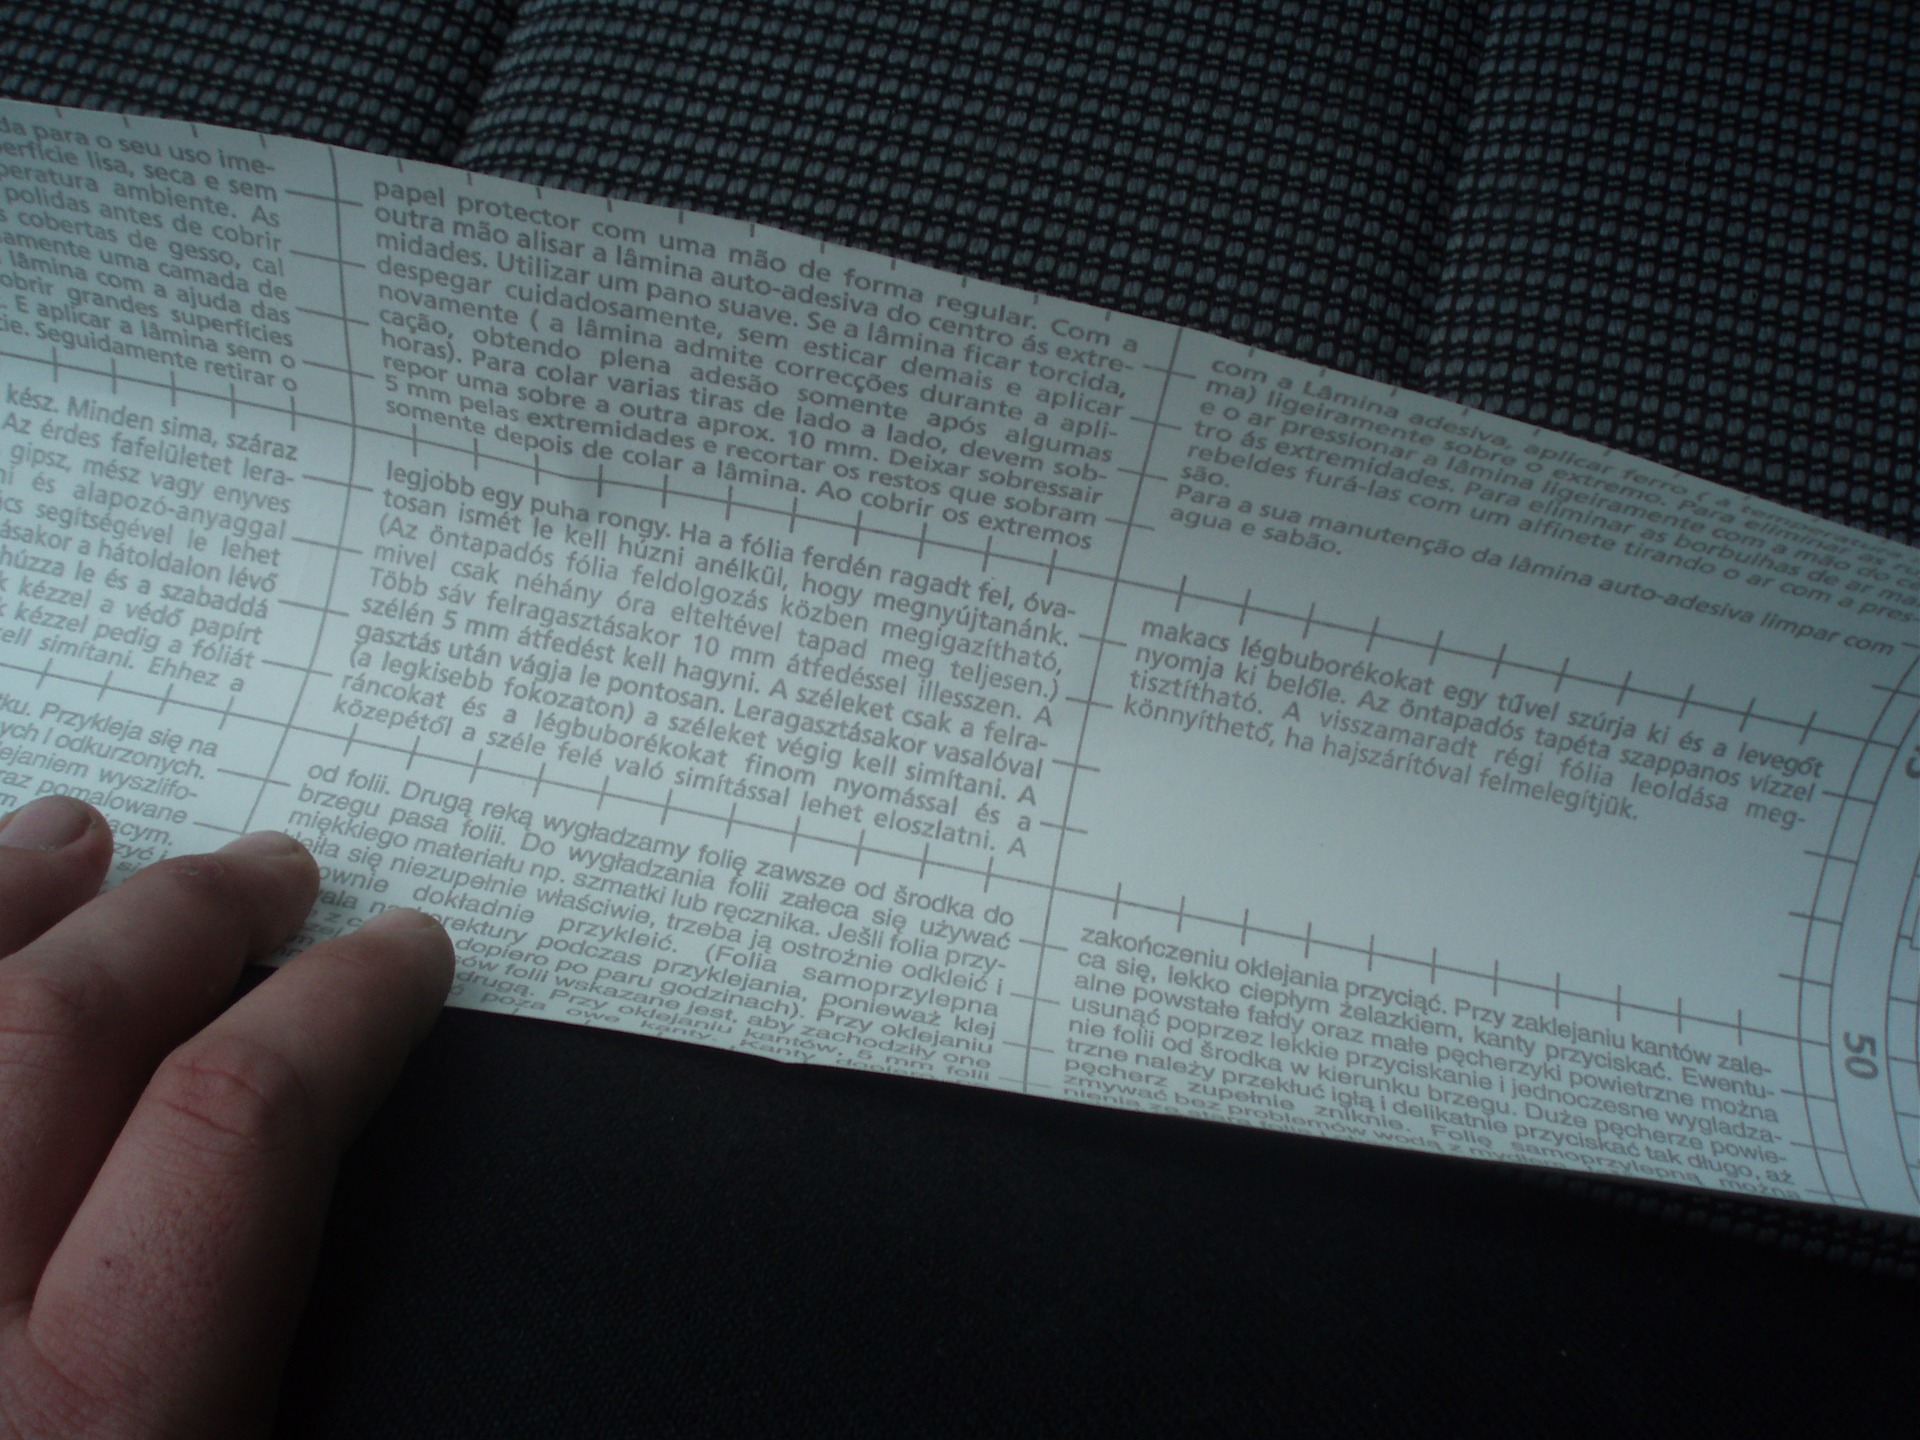 da para o seu uso ime-
erfície lisa, seca e sem
peratura ambiente. As
polidas antes de cobrir
s cobertas de gesso, cal
amente uma camada de
lâmina com a ajuda das
obrir grandes superfícies
E aplicar a lâmina sem o
ie. Seguidamente retirar o
papel protector com uma mão de forma regular. Com a
outra mão alisar a lâmina auto-adesiva do centro ás extre-
midades. Utilizar um pano suave. Se a lâmina ficar torcida,
despegar cuidadosamente, sem esticar demais e aplicar
novamente ( a lâmina admite correcções durante a apli-
cação, obtendo plena adesão somente após algumas
horas). Para colar varias tiras de lado a lado, devem sob-
repor uma sobre a outra aprox. 10 mm. Deixar sobressair
5 mm pelas extremidades e recortar os restos que sobram
somente depois de colar a lâmina. Ao cobrir os extremos
com a Lâmina adesiva, aplicar ferro ( a
ma) ligeiramente sobre o extremo. Para eliminar as
e o ar pressionar a lâmina ligeiramente com a mão do
tro ás extremidades. Para eliminar as borbulhas de ar
rebeldes furá-las com um alfinete tirando o ar com a pres-
são.
Para a sua manutenção da lâmina auto-adesiva limpar com
agua e sabão.
kész. Minden sima, száraz
Az érdes fafelületet lera-
gipsz, mész vagy enyves
ni és alapozó-anyaggal
segítségével le lehet
ásakor a hátoldalon lévő
húzza le és a szabaddá
k kézzel a védő papírt
k kézzel pedig a fóliát
kell simítani. Ehhez a
legjobb egy puha rongy. Ha a fólia ferdén ragadt fel, óva-
tosan ismét le kell húzni anélkül, hogy megnyújtanánk.
(Az öntapadós fólia feldolgozás közben megigazítható,
mivel csak néhány óra elteltével tapad meg teljesen.)
Több sáv felragasztásakor 10 mm átfedéssel illesszen. A
szélén 5 mm átfedést kell hagyni. A széleket csak a felra-
gasztás után vágja le pontosan. Leragasztásakor vasalóval
(a legkisebb fokozaton) a széleket végig kell simítani. A
ráncokat és a légbuborékokat finom nyomással és a
közepétől a széle felé való simítással lehet eloszlatni. A
makacs légbuborékokat egy tűvel szúrja ki és a levegőt
nyomja ki belőle. Az öntapadós tapéta szappanos vízzel
tisztítható. A visszamaradt régi fólia leoldása meg-
könnyíthető, ha hajszárítóval felmelegítjük.
ku. Przykleja się na
ych i odkurzonych.
lejaniem wyszlifo-
raz pomalowane
ącym.
od folii. Drugą reką wygładzamy folię zawsze od środka do
brzegu pasa folii. Do wygładzania folii załeca się używać
miękkiego materiału np. szmatki lub ręcznika. Jeśli folia przy-
się niezupełnie właściwie, trzeba ją ostrożnie odkleić i
dokładnie przykleić. (Folia samoprzylepna
korektury podczas przyklejania, ponieważ klej
dopiero po paru godzinach). Przy oklejaniu
folii wskazane jest, aby zachodziły one
drugą. Przy oklejaniu kantów, 5 mm folii
poza owe kanty.
zakończeniu oklejania przyciąć. Przy zaklejaniu kantów zale-
ca się, lekko ciepłym żelazkiem, kanty przyciskać. Ewentu-
alne powstałe fałdy oraz małe pęcherzyki powietrzne można
usunąć poprzez lekkie przyciskanie i jednoczesne wygładza-
nie folii od środka w kierunku brzegu. Duże pęcherze powie-
trzne należy przekłuć igłą i delikatnie przyciskać tak długo, aż
pęcherz zupełnie zniknie. Folię samoprzylepną można
zmywać bez problemów wodą z mydłem.
50